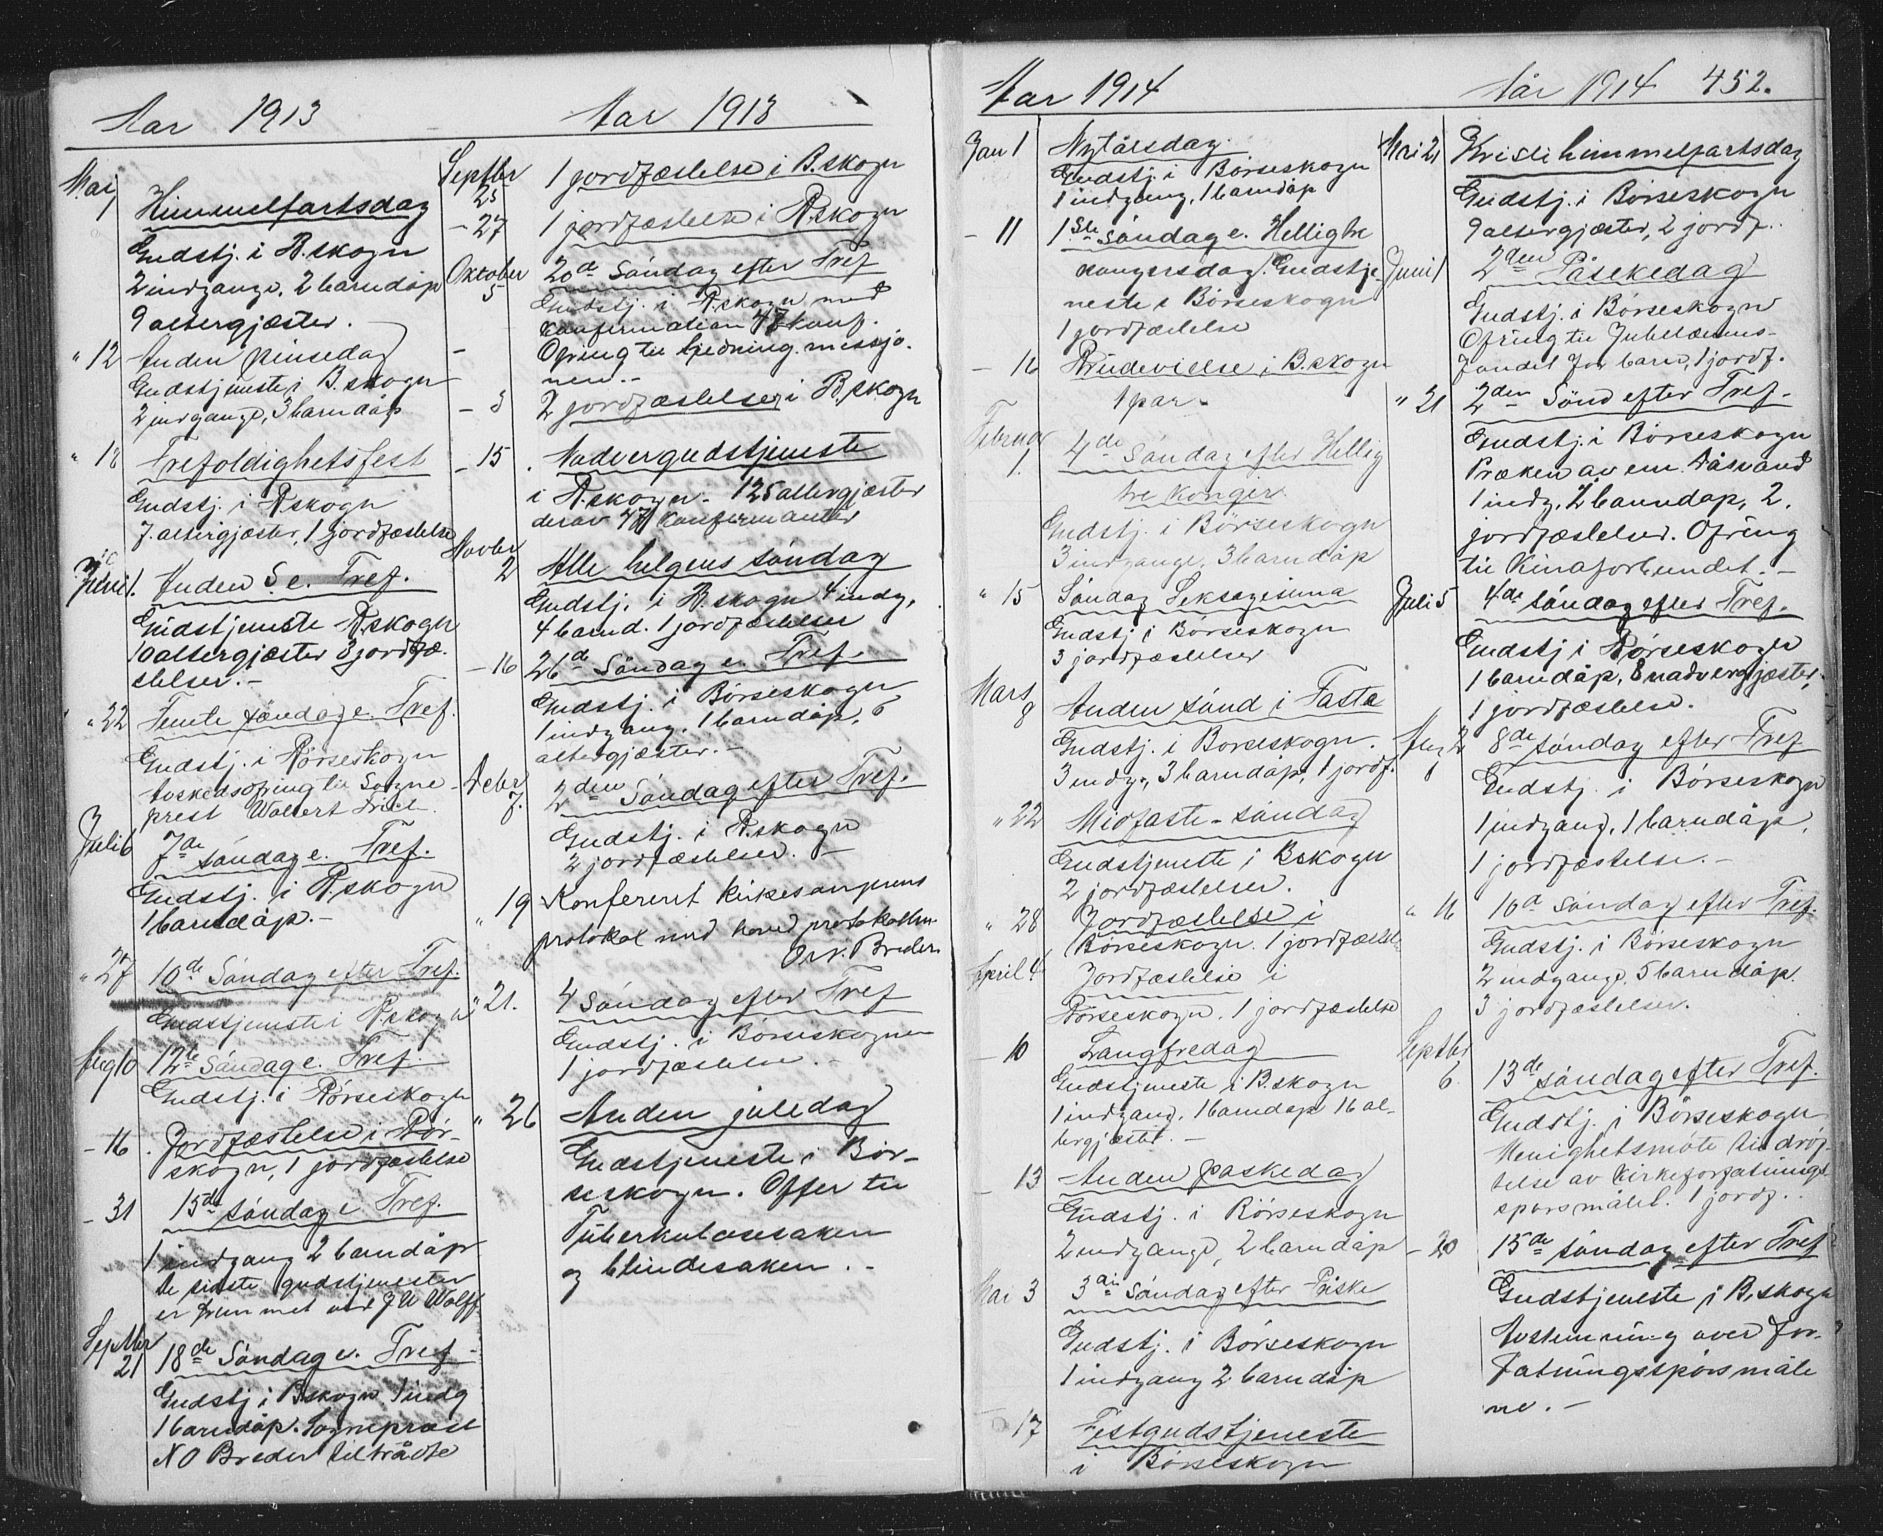 Aar 1913
Mai 1 Himmelfartsdag
Gudstj. i B.skogn
2 indgange, 2 barndåp
9 altergjæster.
" 12 Anden pinsedag
Gudstjeneste i B.skogn
2 indgange, 3 barndåp
" 18 Trefoldighetsfest
Gudstj. i B.skogn
7 altergjæster, 1 jordfæstelse
Juni 1. Anden S. e. Tref.
Gudstjeneste B.skogn
10 altergjæster 3 jordfæ-
stelser. -
" 22 Femte søndag e. Tref.
Gudstj. i Børseskogn
til Sogne-
prest Wolfert
Juli 6 7de søndag e. Tref.
Gudstj. i B.skogn
1 barndåp. -
" 27 10de Søndag efter Tref.
Gudstjeneste i B.skogn
Aug 10 12te Søndag e. Tref.
Gudstj. i Børseskogn
- 16 Jordfæstelse i Bør-
skogn, 1 jordfæstelse
- 31 15de søndag e Tref.
1 indgang 2 barndåp
De sidste gudstjenester
er fremmet ved J W Wolff
Septbr 21 18de Søndag e. Tref.
Gudstj i B.skogn 1 indg
1 barndåp. Sogneprest
N O Breder tiltrådte
Aar 1913
Septbr 25 1 jordfæstelse i B.skogn
- 27 1 jordfæstelse i B.skogn
Oktober 5 20de Søndag efter Tref
Gudstj. i B.skogn med
Konfirmation 47 konf.
Ofring til hedning. missjo-
nen. -
- 3 2 jordfæstelser i B.skogn
- 15 . Nadvergudstjeneste
i B.skogn. 125 altergjæster
derav 47 konfirmanter
Novbr 2 Alle helgens søndag
Gudstj. i B.skogn 4 indg.
4 barnd. 1 jordfæstelser
- 16 26de Søndag e. Tref.
Gudstj. i Børseskogn
1 indgang. 1 barndåp, 6
altergjæster. -
Debr 7. 2den Søndag efter Tref.
Gudstj. i B.skogn
2 jordfæstelser. -
" 19 Konferert kirkesangerens
protokol med hovedprotokollen
Breder.
" 21. 4 Søndag efter Tref
Gudstj. i Børseskogn
1 jordfæstelse. -
" 26 Anden juledag
Gudstjeneste i Bør-
seskogn. Offer til
Tuberkulosesaken
og blindesaken. -
Aar 1914
Jan 1 Nytårsdag
Gudstj. i Børseskogn
1 indgang, 1 barndåp
- 11 1ste Søndag e. Helligtre
kongersdag. Gudstje-
neste i Børseskogn
1 jordfæstelse
- 16 Brudevielse i B.skogn
1 par -
Februar 1. 4de Søndag efter Hellig
tre konger.
Gudstj. i Børseskogn
3 indgange, 3 barndåp
" 15 Søndag Seksagesima
Gudstj i Børseskogn
3 jordfæstelser
Mars 8 Anden sønd i Faste
Gudstj. i Børseskogn.
3 indg., 3 barndåp, 1 jordf.
" 22 Midfaste-søndag
Gudstjeneste i Bskogn
2 jordfæstelser.
" 28 Jordfæstelse i
Børseskogn. 1 jordfæstel-
April 4 Jordfæstelse i
Børseskogn. 1 jordfæstelse
- 10 Langfredag
Gudstjeneste i B.skogn
1 indgang, 1 barndåp 16 al-
tergjæster. -
- 13 Anden paskedag
Gudstj. i Børseskogn
2 indgange, 2 barndåp
Mai 3 3die Søndag efter Påske
Gudstj. i Børseskogn
1 indgang 2 barndåp
17 Festgudstjeneste
i Børseskogn
Aår 1914 452.
Mai 21 Kristi himmelfartsdag
Gudstj. i Børseskogn
9 altergjæster, 2 jordf.
Juni 1 2den Påskedag
Gudstj. i Børseskogn
Ofring til Jubelæums-
fondet for barn, 1 jordf.
" 21 2den Sønd efter Tref.
Gudstj. i Børseskogn
Præken av em.
1 indg. 2 barndåp, 2
jordfæstelser. Ofring
til Kinaforbundet. -
Juli 5 4de søndag efter Tref.
Gudstj i Børseskogn
1 barndåp, 8 nadvergjæster,
1 jordfæstelse.
Aug 2 8de søndag efter Tref
Gudstj. i Børseskogn
1 indgang, 1 barndåp,
1 jordfæstelse. -
" 16 10de søndag efter Tref.
Gudstj. i Børseskogn
2 indgange, 5 barndåp.
3 jordfæstelser.
Septbr 6. 13de søndag efter Tref.
Gudstj. i Børseskogn
Menighetsmøte til drøf-
telse av kirkeforfatnings-
spørsmålet. 1 jordf..
- 20 15de søndag efter Tref
Gudstjeneste i B.skogn
Avstemning over for-
fatningsspørsmåle
ne. -